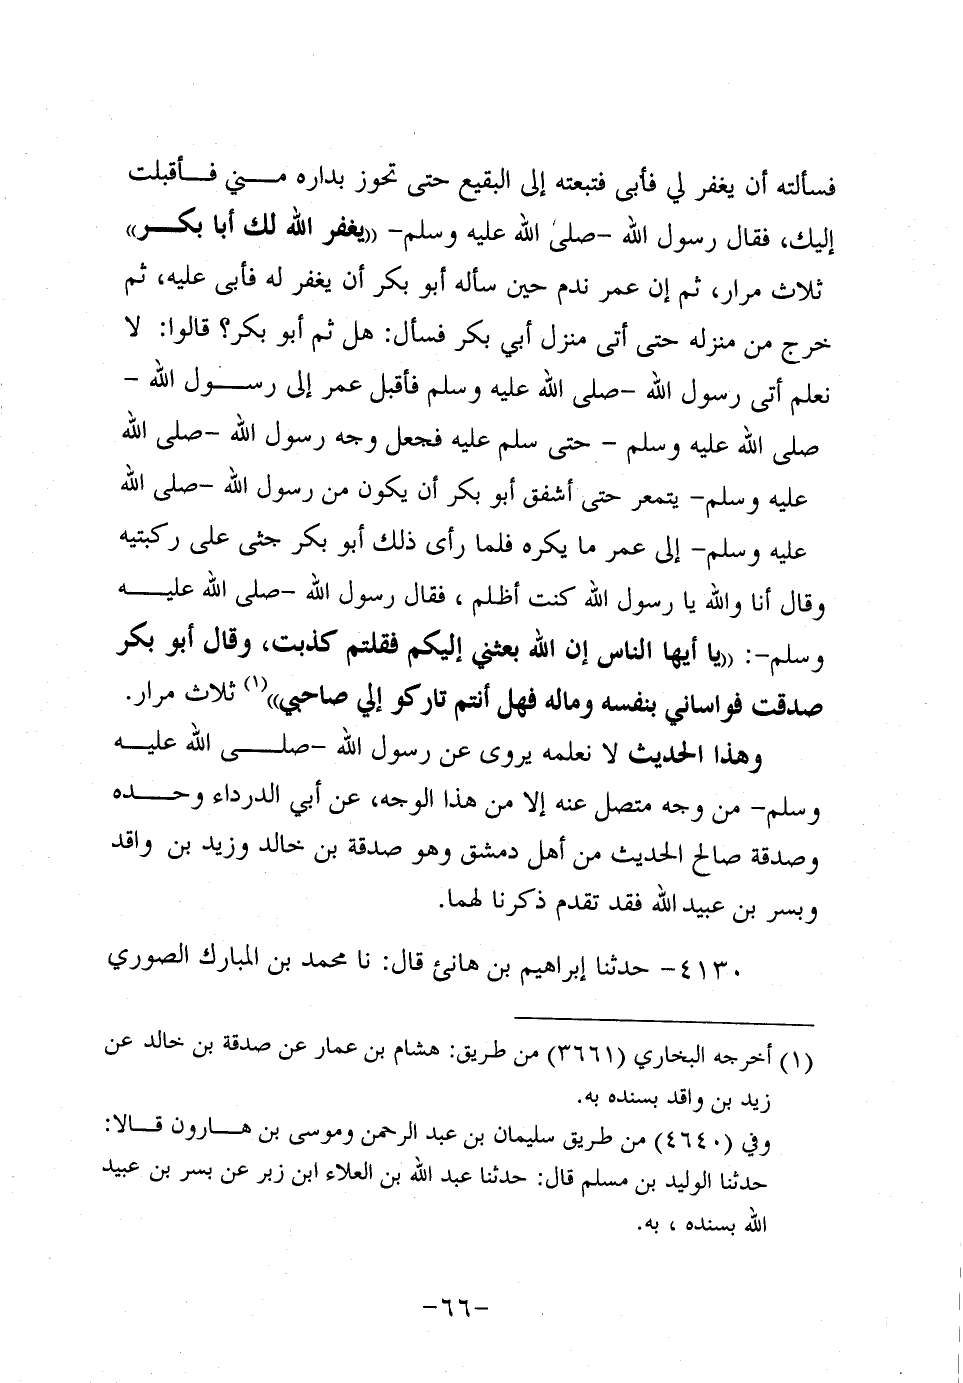 فسألته أن يغفر لي فأبى فتبعته إلى البقيع حتى تحوز بداره مني فأقبلت
إليك، فقال رسول الله -صلى الله عليه وسلم- «يغفر الله لك أبا بكر»
ثلاث مرار، ثم إن عمر ندم حين سأله أبو بكر أن يغفر له فأبى عليه، ثم
خرج من منزله حتى أتى منزل أبي بكر فسأل: هل ثم أبو بكر؟ قالوا: لا
نعلم أتى رسول الله -صلى الله عليه وسلم فأقبل عمر إلى رسول الله -
صلى الله عليه وسلم - حتى سلم عليه فجعل وجه رسول الله -صلى الله
عليه وسلم- يتمعر حتى أشفق أبو بكر أن يكون من رسول الله -صلى الله
عليه وسلم- إلى عمر ما يكره فلما رأى ذلك أبو بكر جثى على ركبتيه
وقال أنا والله يا رسول الله كنت أظلم ، فقال رسول الله -صلى الله عليه
وسلم-: «يا أيها الناس إن الله بعثني إليكم فقلتم كذبت، وقال أبو بكر
صدقت فواساني بنفسه وماله فهل أنتم تاركو إلي صاحبي»(١) ثلاث مرار.
وهذا الحديث لا نعلمه يروى عن رسول الله -صلى الله عليه
وسلم- من وجه متصل عنه إلا من هذا الوجه، عن أبي الدرداء وحده
وصدقة صالح الحديث من أهل دمشق وهو صدقة بن خالد وزيد بن واقد
وبسر بن عبيد الله فقد تقدم ذكرنا لهما.
٤١٣٠- حدثنا إبراهيم بن هانئ قال: نا محمد بن المبارك الصوري
(١) أخرجه البخاري (٣٦٦١) من طريق: هشام بن عمار عن صدقة بن خالد عن
زيد بن واقد بسنده به.
وفي (٤٦٤٠) من طريق سليمان بن عبد الرحمن وموسى بن هارون قالا:
حدثنا الوليد بن مسلم قال: حدثنا عبد الله بن العلاء ابن زبر عن بسر بن عبيد
الله بسنده ، به.
-٦٦-